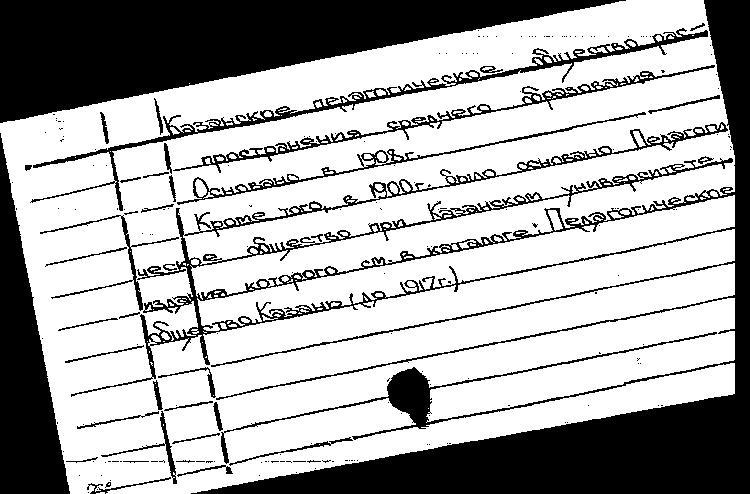 Казанское педагогическое общество рас-
пространения среднего образования.
Основано в 1908г.
Кроме того, в 1900г. было основано Педагоги
ческое общество при Казанском университете,
издания которого см. в каталоге: Педагогическое
общество. Казань (до 1917г.)